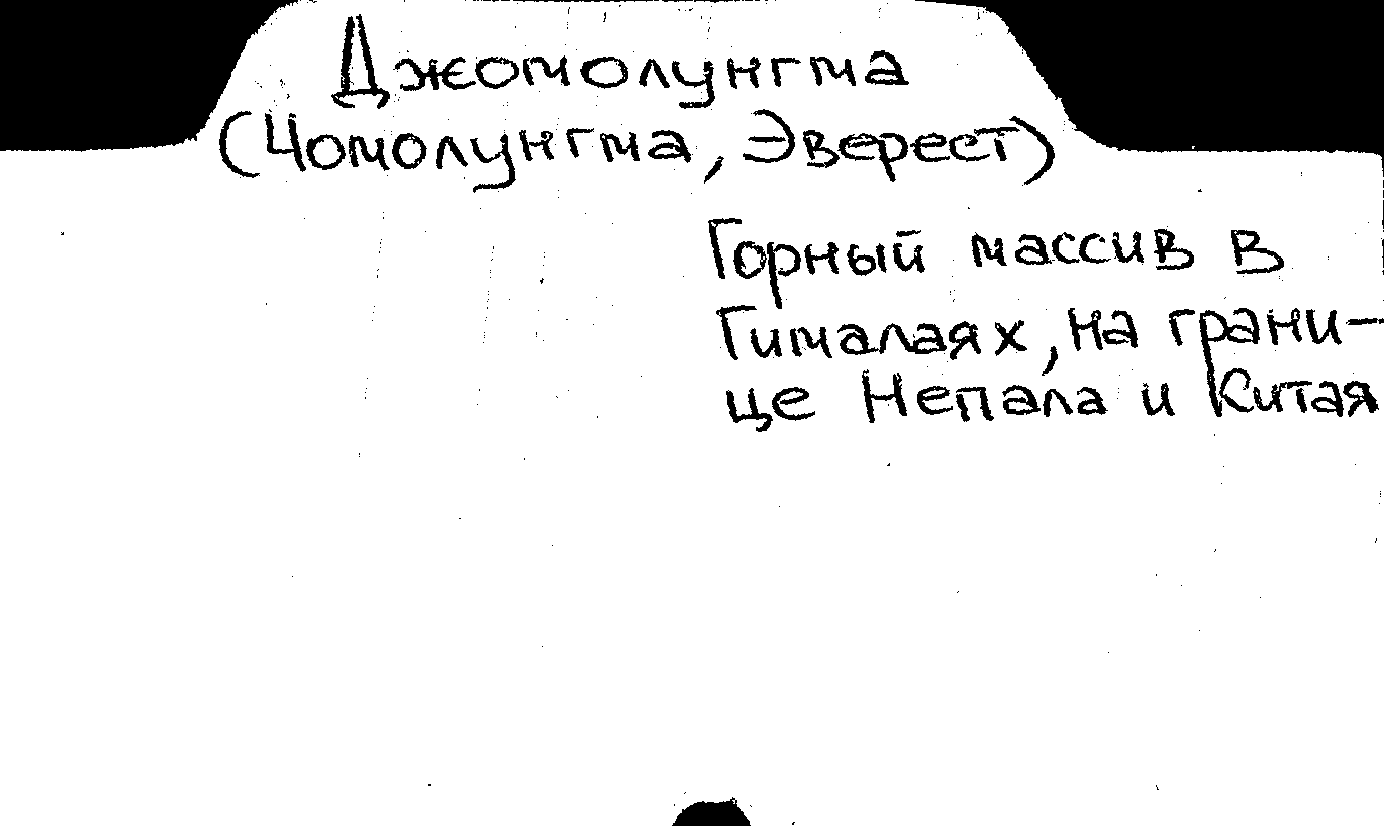 Джомолунгма
(Чомолунгма, Эверест)
Горный массив в
Гималаях, на грани-
це Непала и Китая